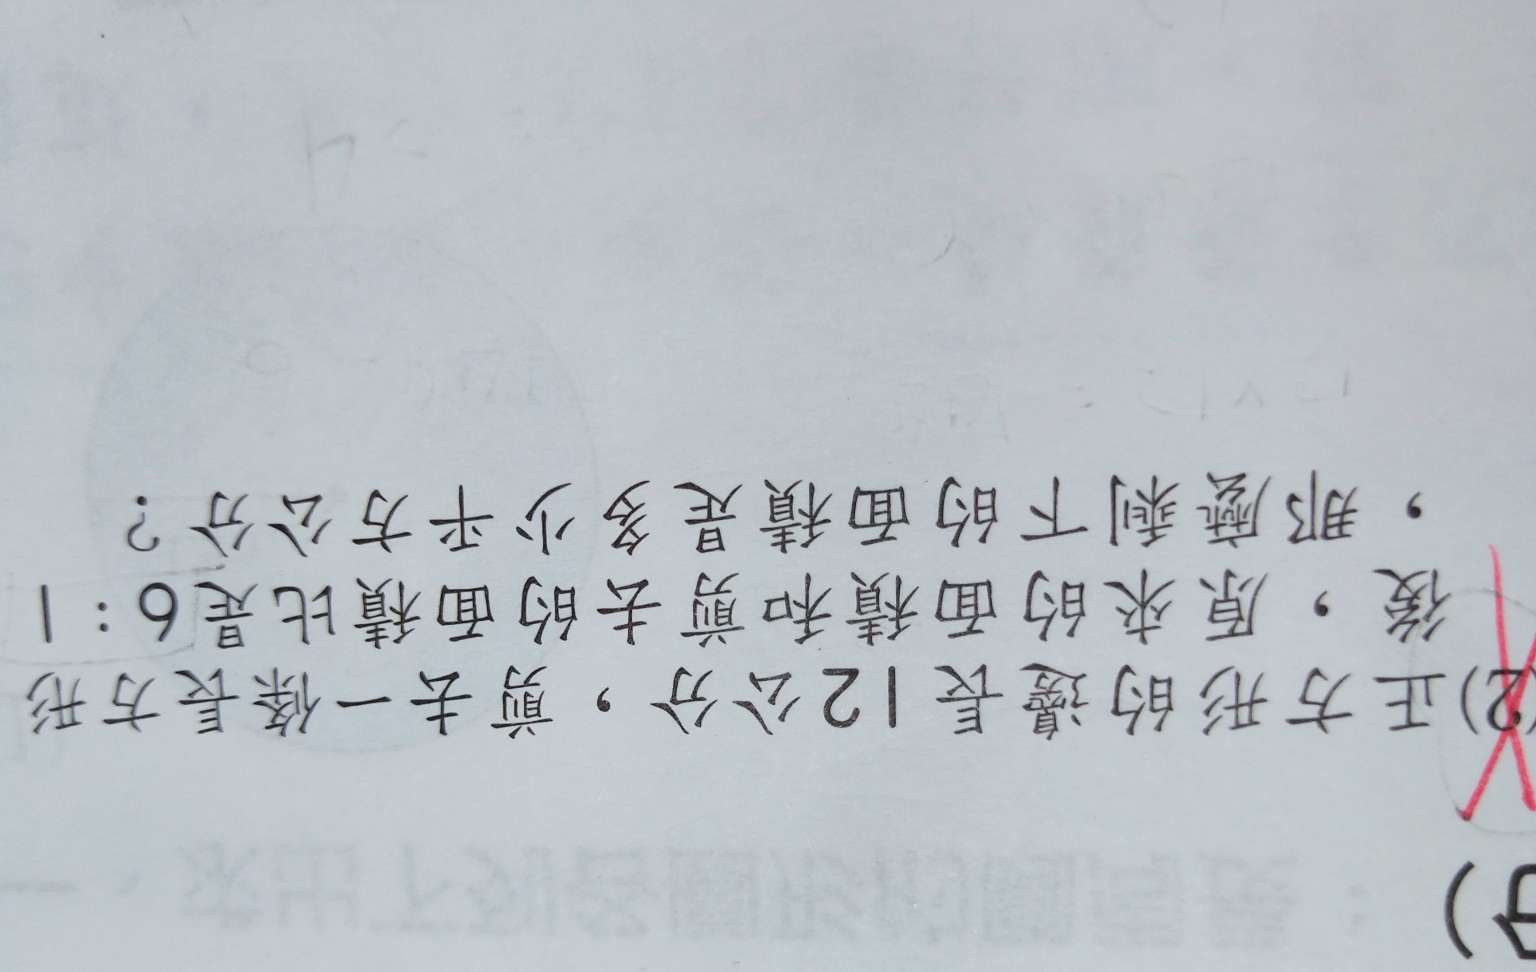 分)
(2)正方形的邊長12公分，剪去一條長方形
後，原來的面積和剪去的面積比是6:1
，那麼剩下的面積是多少平方公分?